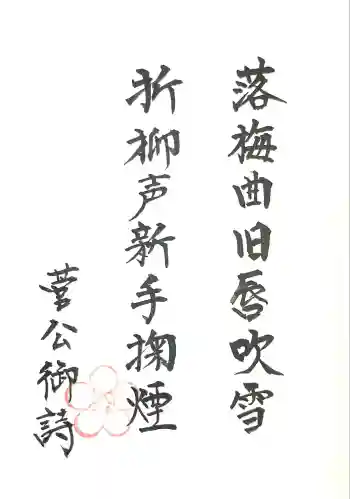 落梅曲旧唇吹雪
折柳声新手掬煙
菅公御詩